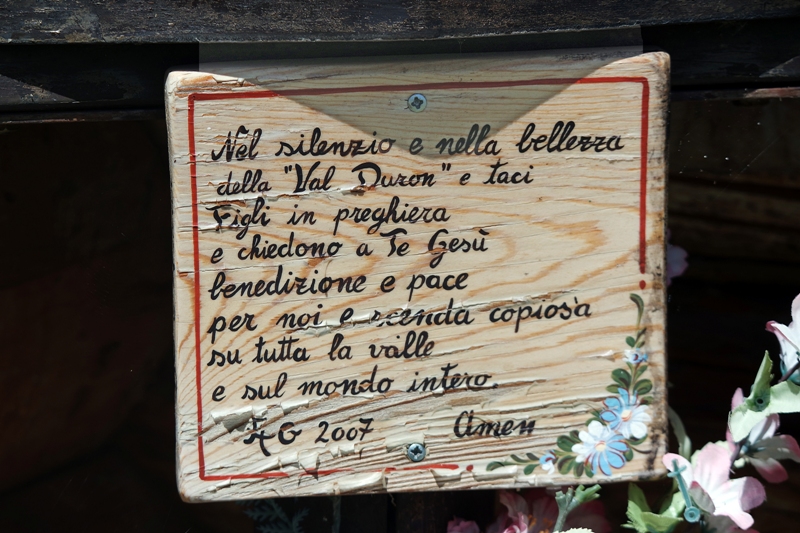 Nel silenzio e nella bellezza
della "Val Duron" e taci
Figli in preghiera
e chiedono a Te Gesù
benedizione e pace
per noi e scenda copiosa
su tutta la valle
e sul mondo intero.
AG 2007 Amen